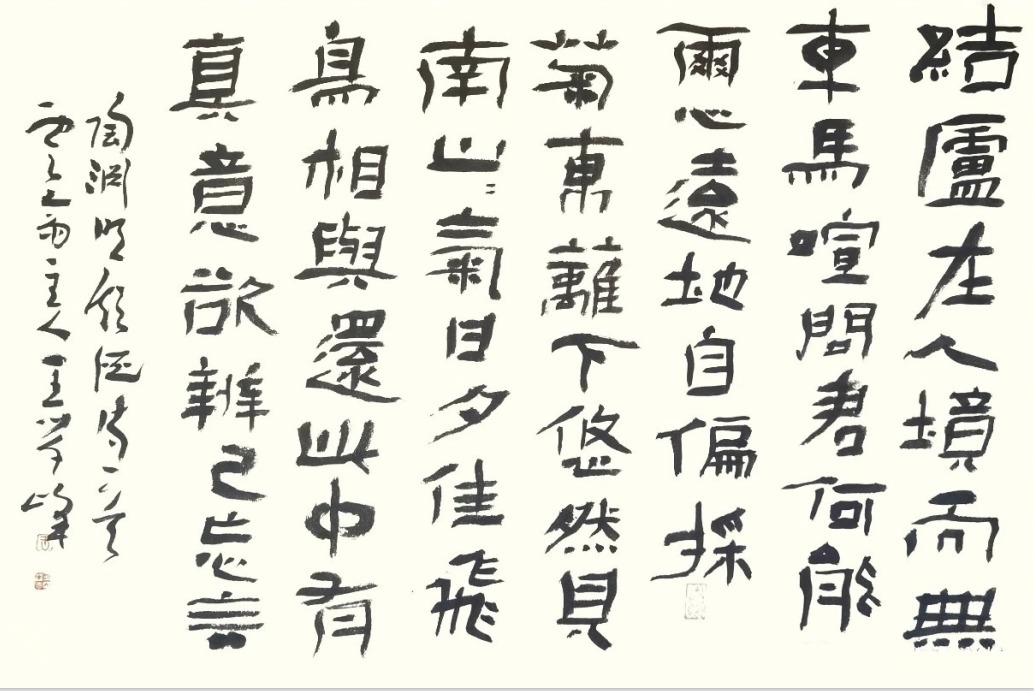 結廬在人境而無
車馬喧問君何能
爾心遠地自偏採
菊東蘺下悠然見
南山〻氣日夕佳飛
鳥相與還此中有
真意欲辨已忘言
陶淵明飲酒詩一首
主人王學峰